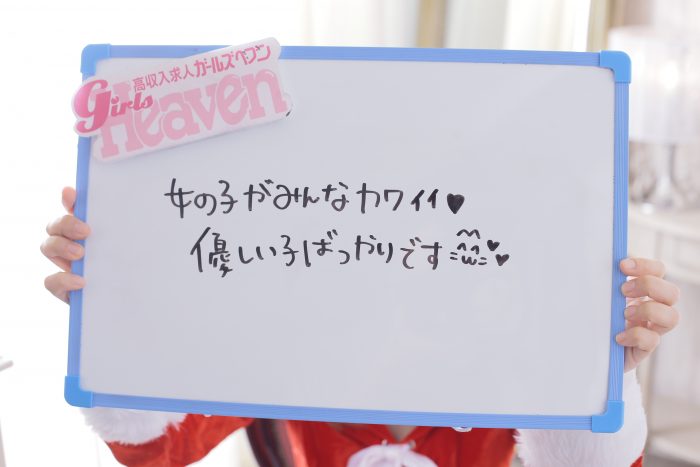 高収入求人ガールズヘブン
Girls
Heaven
女の子がみんなカワイイ♥
優しい子ばっかりです